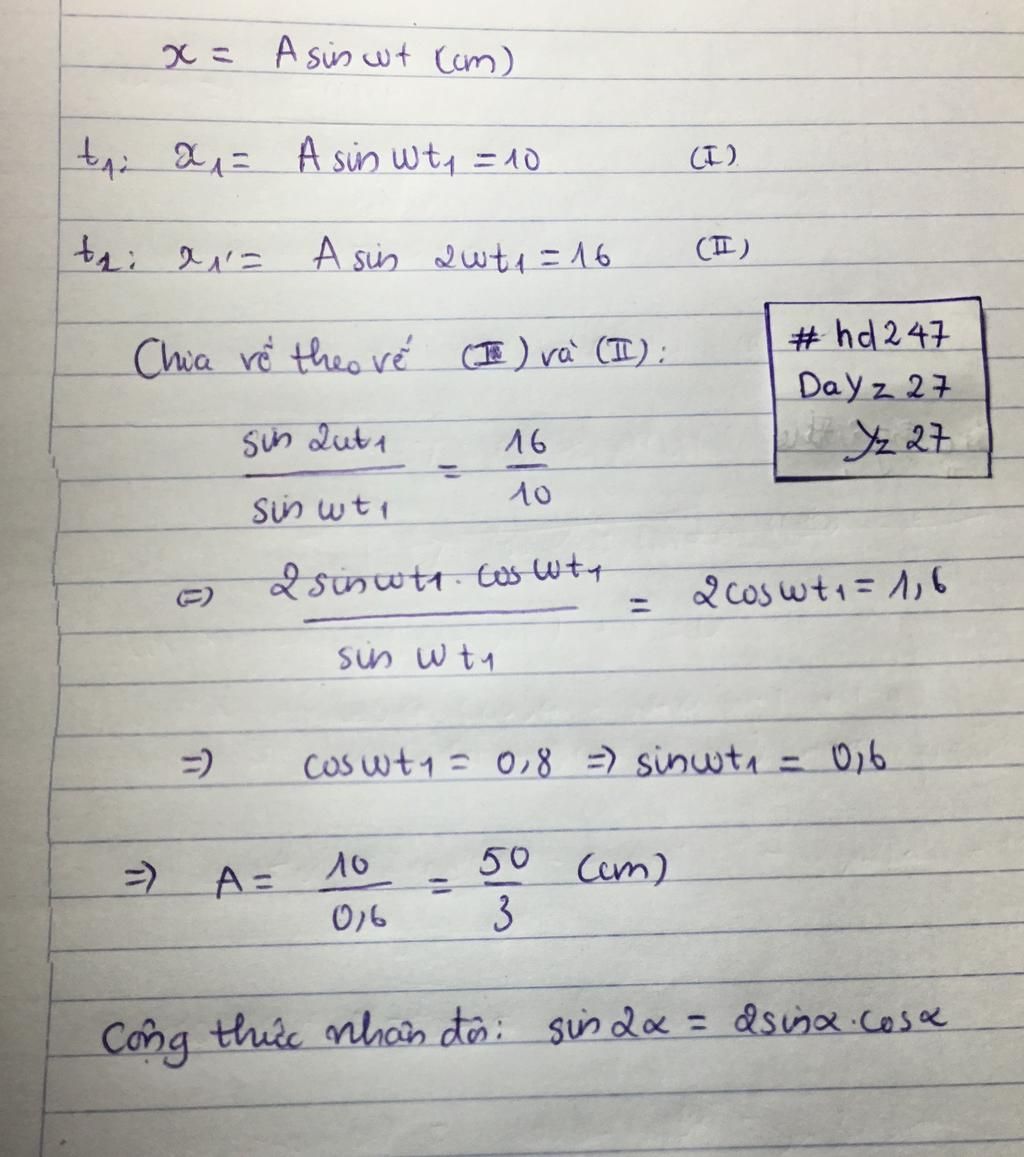 x = A sin ωt (cm)
t₁: x₁ = A sin ωt₁ = 10 (I)
t₂: x₁' = A sin 2ωt₁ = 16 (II)
Chia vế theo vế (I) và (II):
# hd247
DaYz27
Yz27
sin 2ωt₁ / sin ωt₁ = 16 / 10
(=) 2 sin ωt₁ . cos ωt₁ / sin ωt₁ = 2 cos ωt₁ = 1,6
=) cos ωt₁ = 0,8 =) sin ωt₁ = 0,6
=) A = 10 / 0,6 = 50 / 3 (cm)
Công thức nhân đôi: sin 2α = 2 sin α . cos α